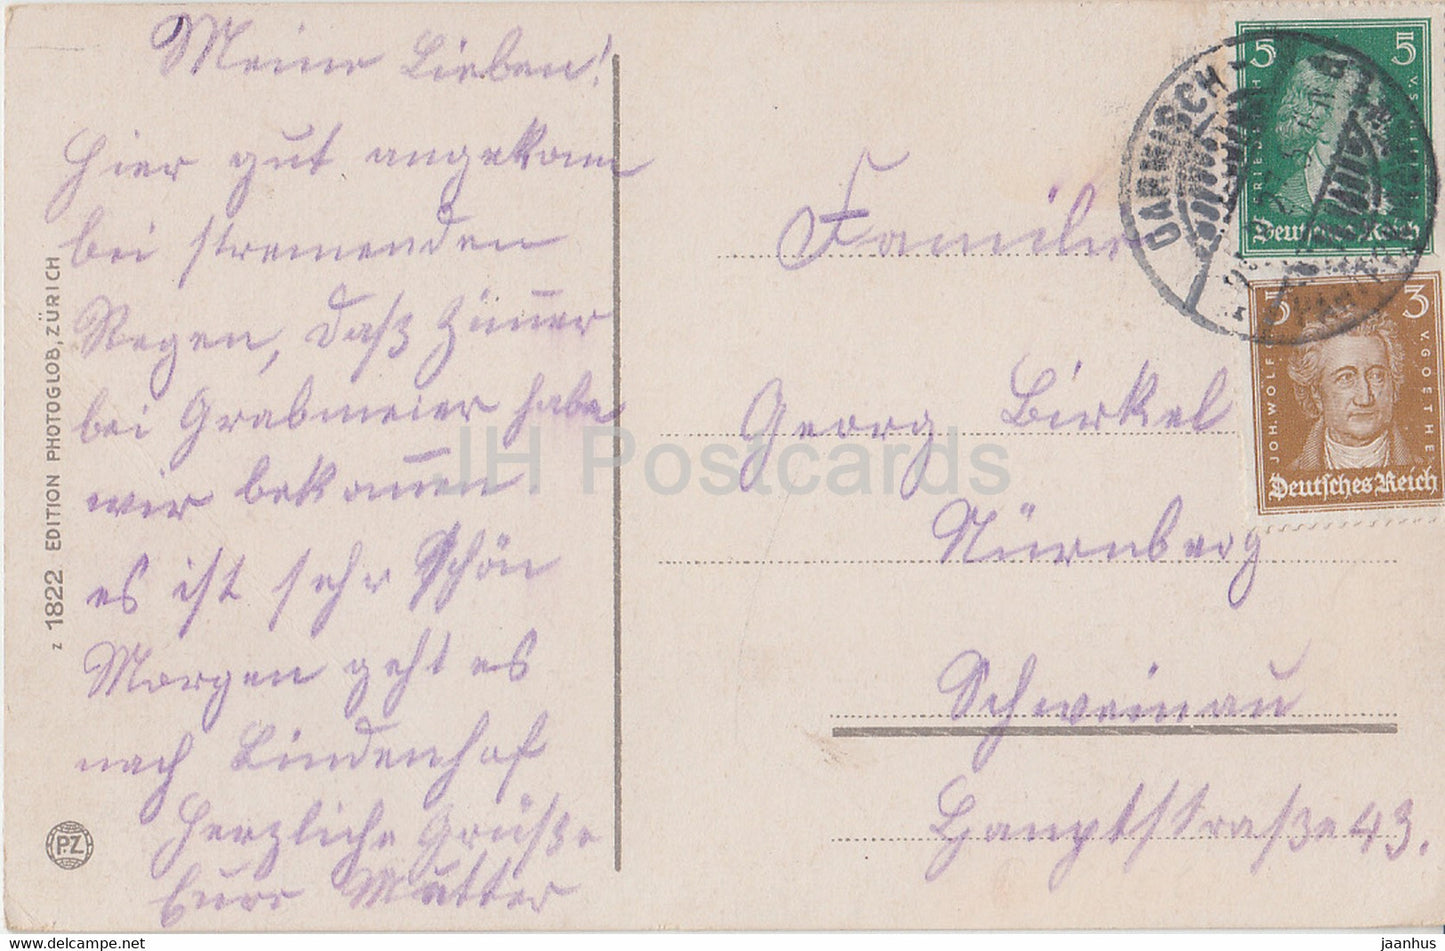 Meine Lieben!
Hier gut angekomm
bei stremenden
Regen, daß Zimmer
bei Grabmeier habe
wir bekommen
es ist sehr schön
Morgen geht es
nach Lindenhof
Herzliche Grüße
Eure Mutter
Z 1822 EDITION PHOTOGLOB, ZÜRICH
PZ
Familie
Georg Birkel
Nürnberg
Schweinau
Hauptstraße 43.
GARMISCH
5 5
Deutsches Reich
3 3
JOH. WOLFG. V. GOETHE
Deutsches Reich
JH Postcards
www.delcampe.net
jaanhus